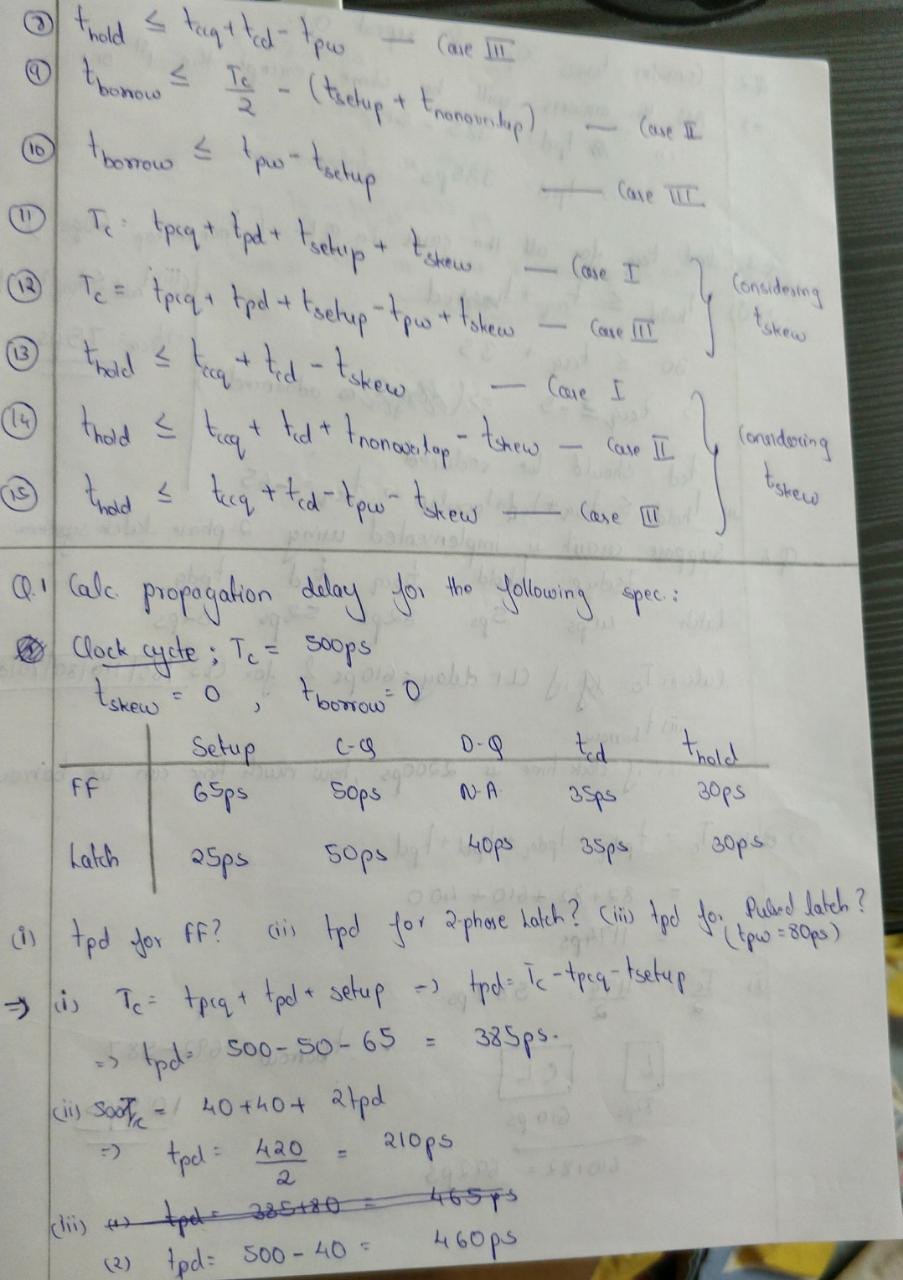 ⑧ t_hold ≤ t_ccq + t_cd - t_pw — Case III
⑨ t_borrow ≤ T_c/2 - (t_setup + t_nonoverlap) — Case II
⑩ t_borrow ≤ t_pw - t_setup — Case III
⑪ T_c = t_pcq + t_pd + t_setup + t_skew — Case I
⑫ T_c = t_pcq + t_pd + t_setup - t_pw + t_skew — Case III
} Considering t_skew
⑬ t_hold ≤ t_ccq + t_cd - t_skew — Case I
⑭ t_hold ≤ t_ccq + t_cd + t_nonoverlap - t_skew — Case II
⑮ t_hold ≤ t_ccq + t_cd - t_pw - t_skew — Case III
} Considering t_skew
Q.1 Calc. propagation delay for the following spec.:
Clock cycle; T_c = 500ps
t_skew = 0, t_borrow = 0
Setup C-Q D-Q t_cd t_hold
FF 65ps 50ps N.A 35ps 30ps
Latch 25ps 50ps 40ps 35ps 30ps
(i) t_pd for FF? (ii) t_pd for 2-phase Latch? (iii) t_pd for Pulsed latch?
(t_pw = 80ps)
⇒ (i) T_c = t_pcq + t_pd + setup ⇒ t_pd = T_c - t_pcq - t_setup
⇒ t_pd = 500 - 50 - 65 = 385ps.
(ii) 500 T_c = 40+40+ 2t_pd
⇒ t_pd = 420/2 = 210ps
(iii) (1) t_pd = 385+80 = 465ps
(2) t_pd = 500 - 40 = 460ps